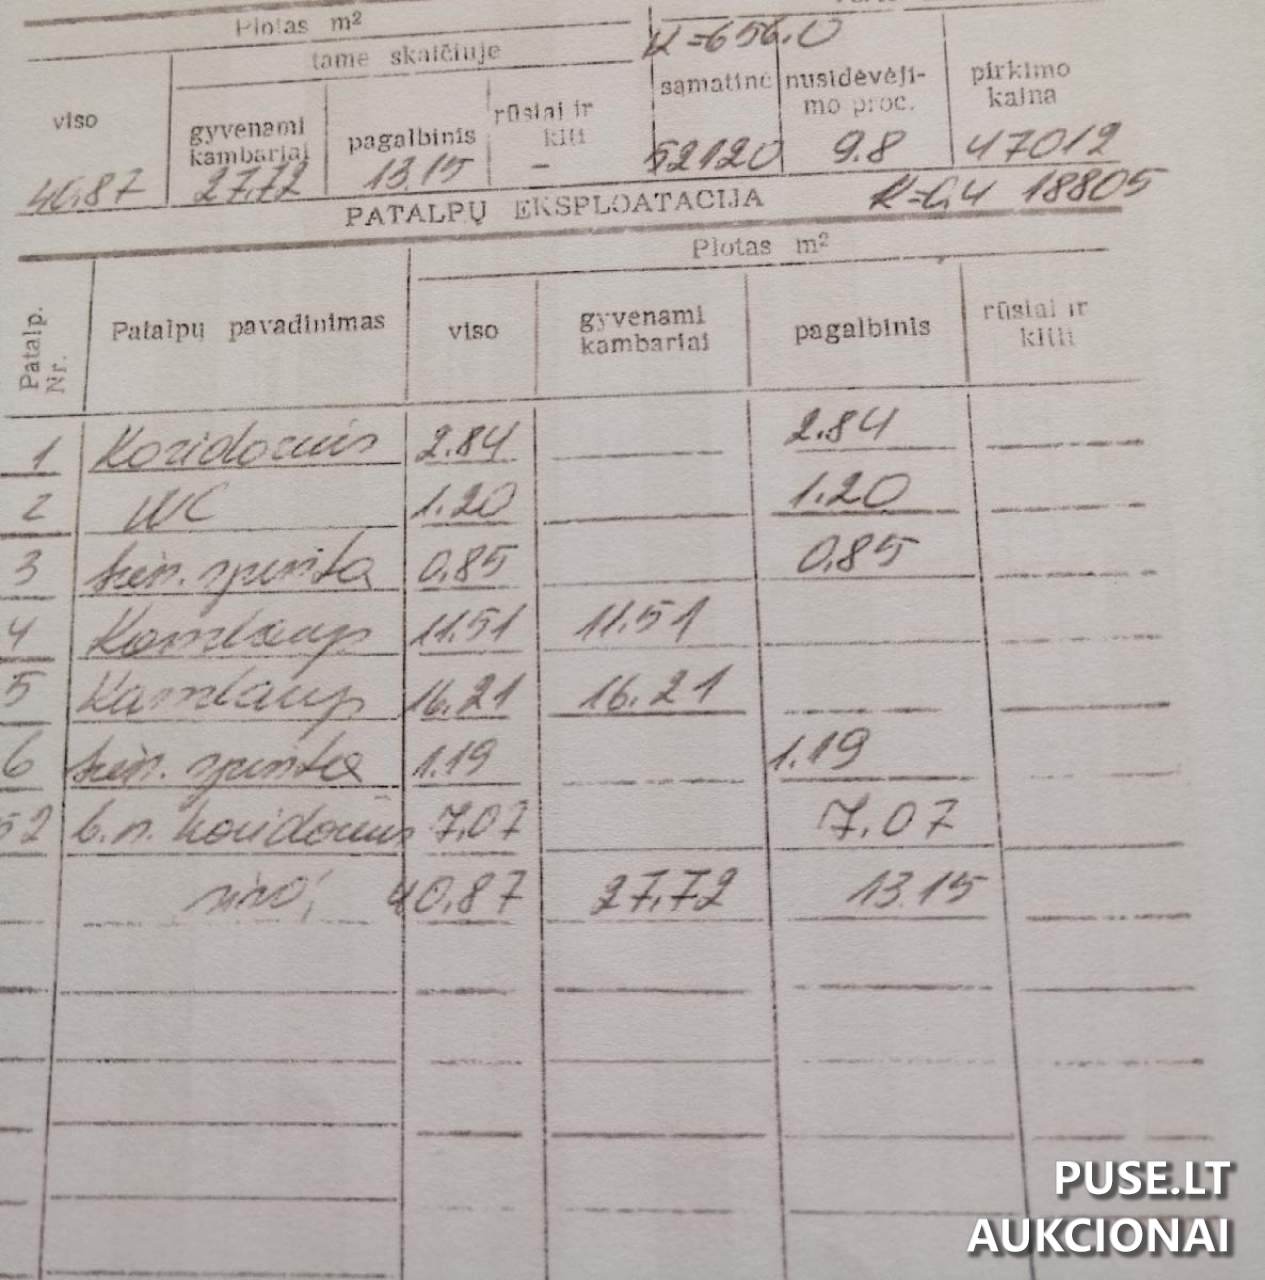 Plotas m²
K=656.0
tame skaičiuje
viso
gyvenami kambariai
pagalbinis
rūsiai ir kiti
sąmatinė
nusidėvėji-mo proc.
pirkimo kaina
40.87 27.72 13.15 – 52120 9.8 47012
PATALPŲ EKSPLOATACIJA K=0,4 18805
Plotas m²
Patalp. Nr.
Patalpų pavadinimas
viso
gyvenami kambariai
pagalbinis
rūsiai ir kiti
1 Koridorius 2.84 2.84
2 WC 1.20 1.20
3 sien. spinta 0,85 0,85
4 Kambarys 11.51 11.51
5 Kambarys 16.21 16.21
6 sien. spinta 1.19 1.19
52 b.n. koridorius 7,07 7,07
viso: 40,87 27,72 13.15
PUSE.LT
AUKCIONAI